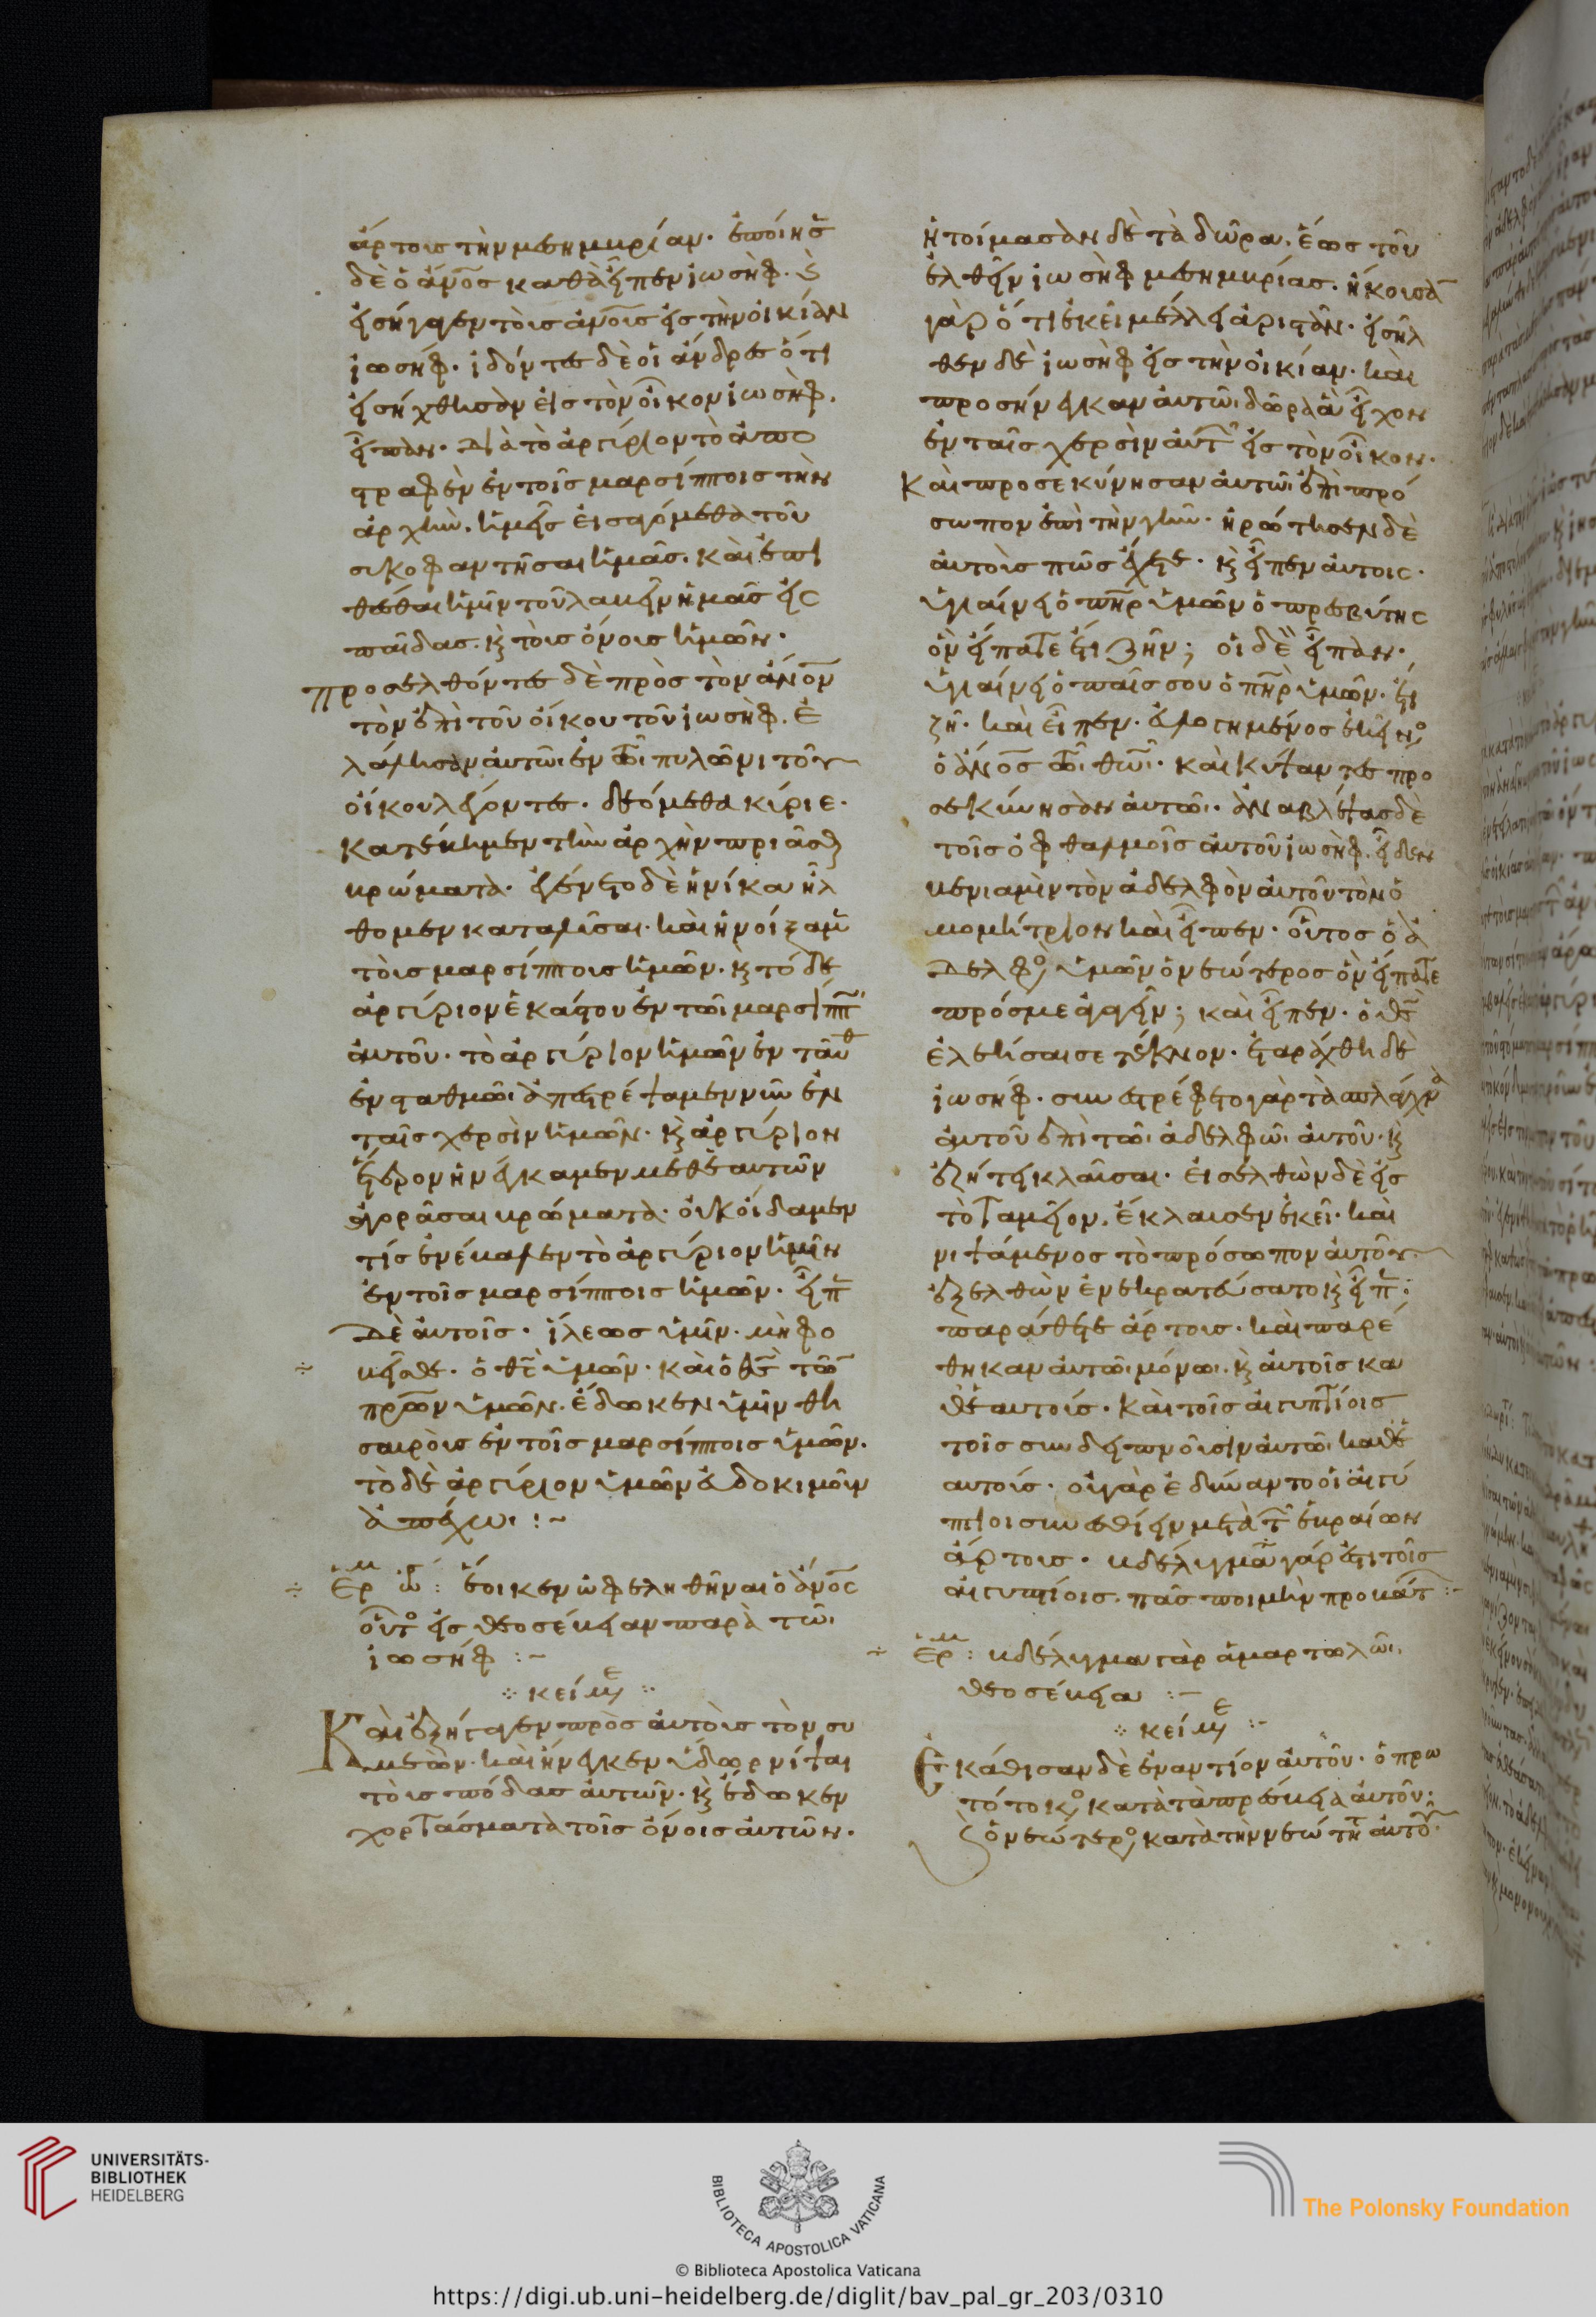 ἄρτους τὴν μεσημβρίαν. ἐποίησε
δὲ ὁ ἄνος καθὰ εἶπεν ἰωσήφ. καὶ
εἰσήγαγεν τοὺς ἀνους εἰς τὴν οἰκίαν
ἰωσήφ. ἰδόντες δὲ οἱ ἄνδρες ὅτι
εἰσήχθησαν εἰς τὸν οἶκον ἰωσήφ.
εἶπαν. διὰ τὸ ἀργύριον τὸ ἀπο
στραφὲν ἐν τοῖς μαρσίπποις τὴν
ἀρχὴν. ἡμεῖς εἰσαγόμεθα τοῦ
συκοφαντῆσαι ἡμᾶς. καὶ ἐπι
θέσθαι ἡμῖν τοῦ λαβεῖν ἡμᾶς εἰς
παῖδας. καὶ τοὺς ὄνους ἡμῶν.
προσελθόντες δὲ πρὸς τὸν ἀνον
τὸν ἐπὶ τοῦ οἴκου τοῦ ἰωσήφ. ἐ
λάλησαν αὐτῶι ἐν τῶι πυλῶνι τοῦ
οἴκου λέγοντες. δεόμεθα κύριε.
κατέβημεν τὴν ἀρχὴν πριάσασθαι
βρώματα. ἐγένετο δὲ ἡνίκα ἤλ
θομεν καταλῦσαι. καὶ ἠνοίξαμεν
τοὺς μαρσίππους ἡμῶν. καὶ τόδε
ἀργύριον ἑκάστου ἐν τῶι μαρσίππω
αὐτοῦ. τὸ ἀργύριον ἡμῶν ἐν
ἐν σταθμῶι ἀπεστρέψαμεν νῦν ἐν
ταῖς χερσὶν ἡμῶν. καὶ ἀργύριον
ἕτερον ἠνέγκαμεν μεθ' ἑαυτῶν
ἀγοράσαι βρώματα. οὐκ οἴδαμεν
τίς ἐνέβαλεν τὸ ἀργύριον ἡμῖν
ἐν τοῖς μαρσίπποις ἡμῶν. εἶπε
δὲ αὐτοῖς. ἵλεως ὑμῖν. μὴ φο
βεῖσθε. ὁ θς ὑμῶν. καὶ ὁ θς τῶν
πρων ὑμῶν. ἔδωκεν ὑμῖν θη
σαυροὺς ἐν τοῖς μαρσίπποις ὑμῶν.
τὸ δὲ ἀργύριον ὑμῶν εὐδοκιμοῦν
ἀπέχω. :~
÷ Ερμ : ἔοικεν ὠφεληθῆναι ὁ ἄνος
οὗτος εἰς θεοσέβειαν παρὰ τῶι
ἰωσήφ :~
·:· κείμε ·:·
Καὶ ἐξήγαγεν πρὸς αὐτοὺς τὸν συ
μεών. καὶ ἤνεγκεν ὕδωρ νίψαι
τοὺς πόδας αὐτῶν. καὶ ἔδωκεν
χορτάσματα τοῖς ὄνοις αὐτῶν.
ἡτοίμασαν δὲ τὰ δῶρα. ἕως τοῦ
ἐλθεῖν ἰωσὴφ μεσημβρίας. ἤκουσαν
γὰρ ὅτι ἐκεῖ μέλλει ἀριστᾶν. εἰσῆλ
θεν δὲ ἰωσὴφ εἰς τὴν οἰκίαν. καὶ
προσήνεγκαν αὐτῶι δῶρα ἃ εἶχον
ἐν ταῖς χερσὶν αὐτῶν εἰς τὸν οἶκον.
Καὶ προσεκύνησαν αὐτῶι ἐπὶ πρό
σωπον ἐπὶ τὴν γῆν. ἠρώτησεν δὲ
αὐτοὺς πῶς ἔχετε. καὶ εἶπεν αὐτοῖς.
ὑγιαίνει ὁ πηρ ὑμῶν ὁ πρεσβύτης
ὃν εἴπατε ἔτι ζῆν; οἱ δὲ εἶπαν.
ὑγιαίνει ὁ παῖς σου ὁ πηρ ἡμῶν. ἔτι
ζῆ. καὶ εἶπεν. εὐλογημένος ἐκεῖνος
ὁ ἀνος τῶι θωι. καὶ κύψαντες προ
σεκύνησαν αὐτῶι. ἀναβλέψας δὲ
τοῖς ὀφθαλμοῖς αὐτοῦ ἰωσήφ. εἶδεν
βενιαμὶν τὸν ἀδελφὸν αὐτοῦ τὸν ὁ
μομήτριον καὶ εἶπεν. οὗτος ὁ ἀ
δελφὸς ὑμῶν ὁ νεώτερος ὃν εἴπατε
πρός με ἀγαγεῖν; καὶ εἶπεν. ὁ θς
ἐλεήσαι σε τέκνον. ἐταράχθη δὲ
ἰωσήφ. συνεστρέφετο γὰρ τὰ σπλάγχνα
αὐτοῦ ἐπὶ τῶι ἀδελφῶι αὐτοῦ. καὶ
ἐζήτει κλαῦσαι. εἰσελθὼν δὲ εἰς
τὸ ταμεῖον. ἔκλαυσεν ἐκεῖ. καὶ
νιψάμενος τὸ πρόσωπον αὐτοῦ
ἐξελθὼν ἐνεκρατεύσατο καὶ εἶπε:
παράθετε ἄρτους. καὶ παρέ
θηκαν αὐτῶι μόνωι. καὶ αὐτοῖς κα
θ' ἑαυτούς. καὶ τοῖς αἰγυπτίοις
τοῖς συνδειπνοῦσιν αὐτῶι καθ' ἑ
αυτούς. οὐ γὰρ ἐδύναντο οἱ αἰγύ
πτιοι συνεσθίειν μετὰ τῶν ἑβραίων
ἄρτους. βδέλυγμα γάρ ἐστι τοῖς
αἰγυπτίοις. πᾶς ποιμὴν προβάτ :~
÷ Ερμ : βδέλυγμα γὰρ ἁμαρτωλῶι.
θεοσέβεια :~
·:· κείμε ·:·
Εκάθισαν δὲ ἐναντίον αὐτοῦ. ὁ πρω
τότοκος κατὰ τὰ πρεσβεῖα αὐτοῦ:
καὶ ὁ νεώτερος κατὰ τὴν νεότητα αὐτοῦ
UNIVERSITÄTS-
BIBLIOTHEK
HEIDELBERG
BIBLIOTECA APOSTOLICA VATICANA
The Polonsky Foundation
© Biblioteca Apostolica Vaticana
https://digi.ub.uni-heidelberg.de/diglit/bav_pal_gr_203/0310